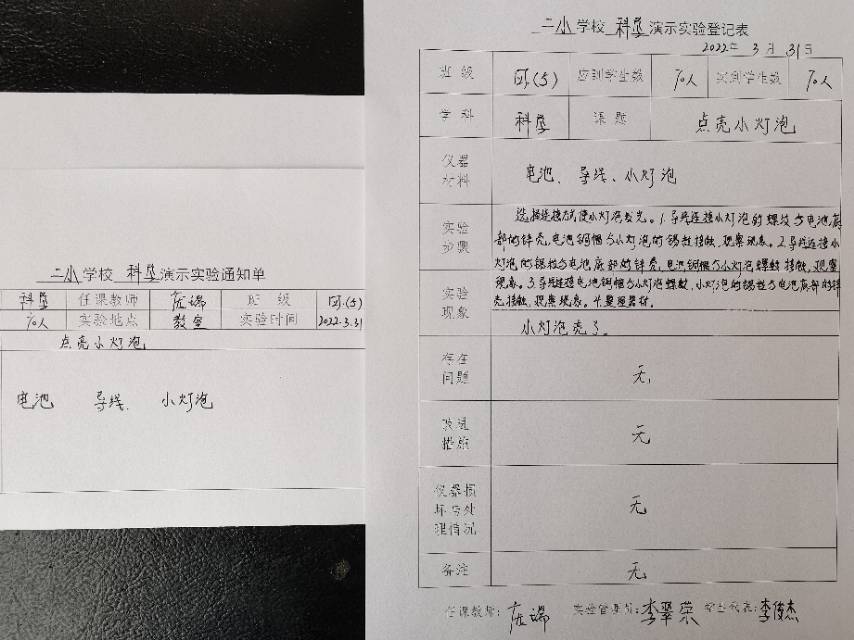 二小学校 科学演示实验通知单
科学 任课教师 庞瑞 班 级 四(5)
70人 实验地点 教室 实验时间 2022.3.31
点亮小灯泡
电池 导线、 小灯泡
二小学校 科学演示实验登记表
2022年 3 月 31日
班 级 四(5) 应到学生数 70人 实到学生数 70人
学 科 科学 课 题 点亮小灯泡
仪器
材料
电池、导线、小灯泡
实验
步骤
选择连接方式使小灯泡发光。1.导线连接小灯泡的螺纹与电池底
部的锌壳,电池铜帽与小灯泡的锡粒接触,观察现象。2.导线连接小
灯泡的锡粒与电池底部的锌壳,电池铜帽与小灯泡螺纹接触,观察
现象。3.导线连接电池铜帽与小灯泡螺纹,小灯泡的锡粒与电池底部的锌
壳接触,观察现象。4.整理器材。
实验
现象
小灯泡亮了。
存在
问题
无
改进
措施
无
仪器损
坏与处
理情况
无
备注 无
任课教师: 庞瑞 实验管理员: 李翠荣 学生代表: 李俊杰